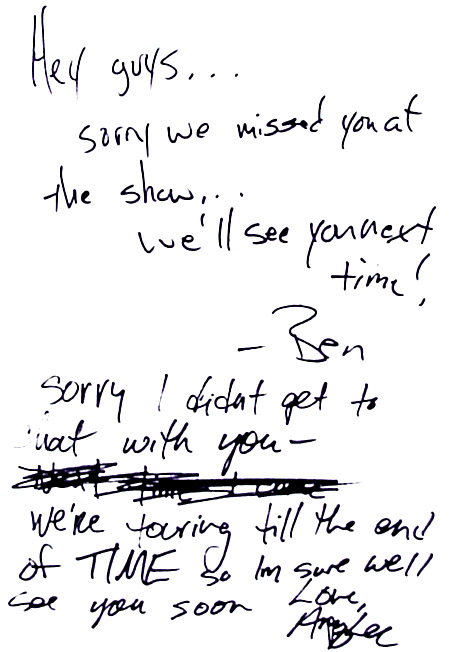 Hey guys...
sorry we missed you at
the show...
we'll see you next
time!
- Ben
sorry I didnt get to
with you-
We're touring till the end
of TIME so Im sure well
see you soon Love,